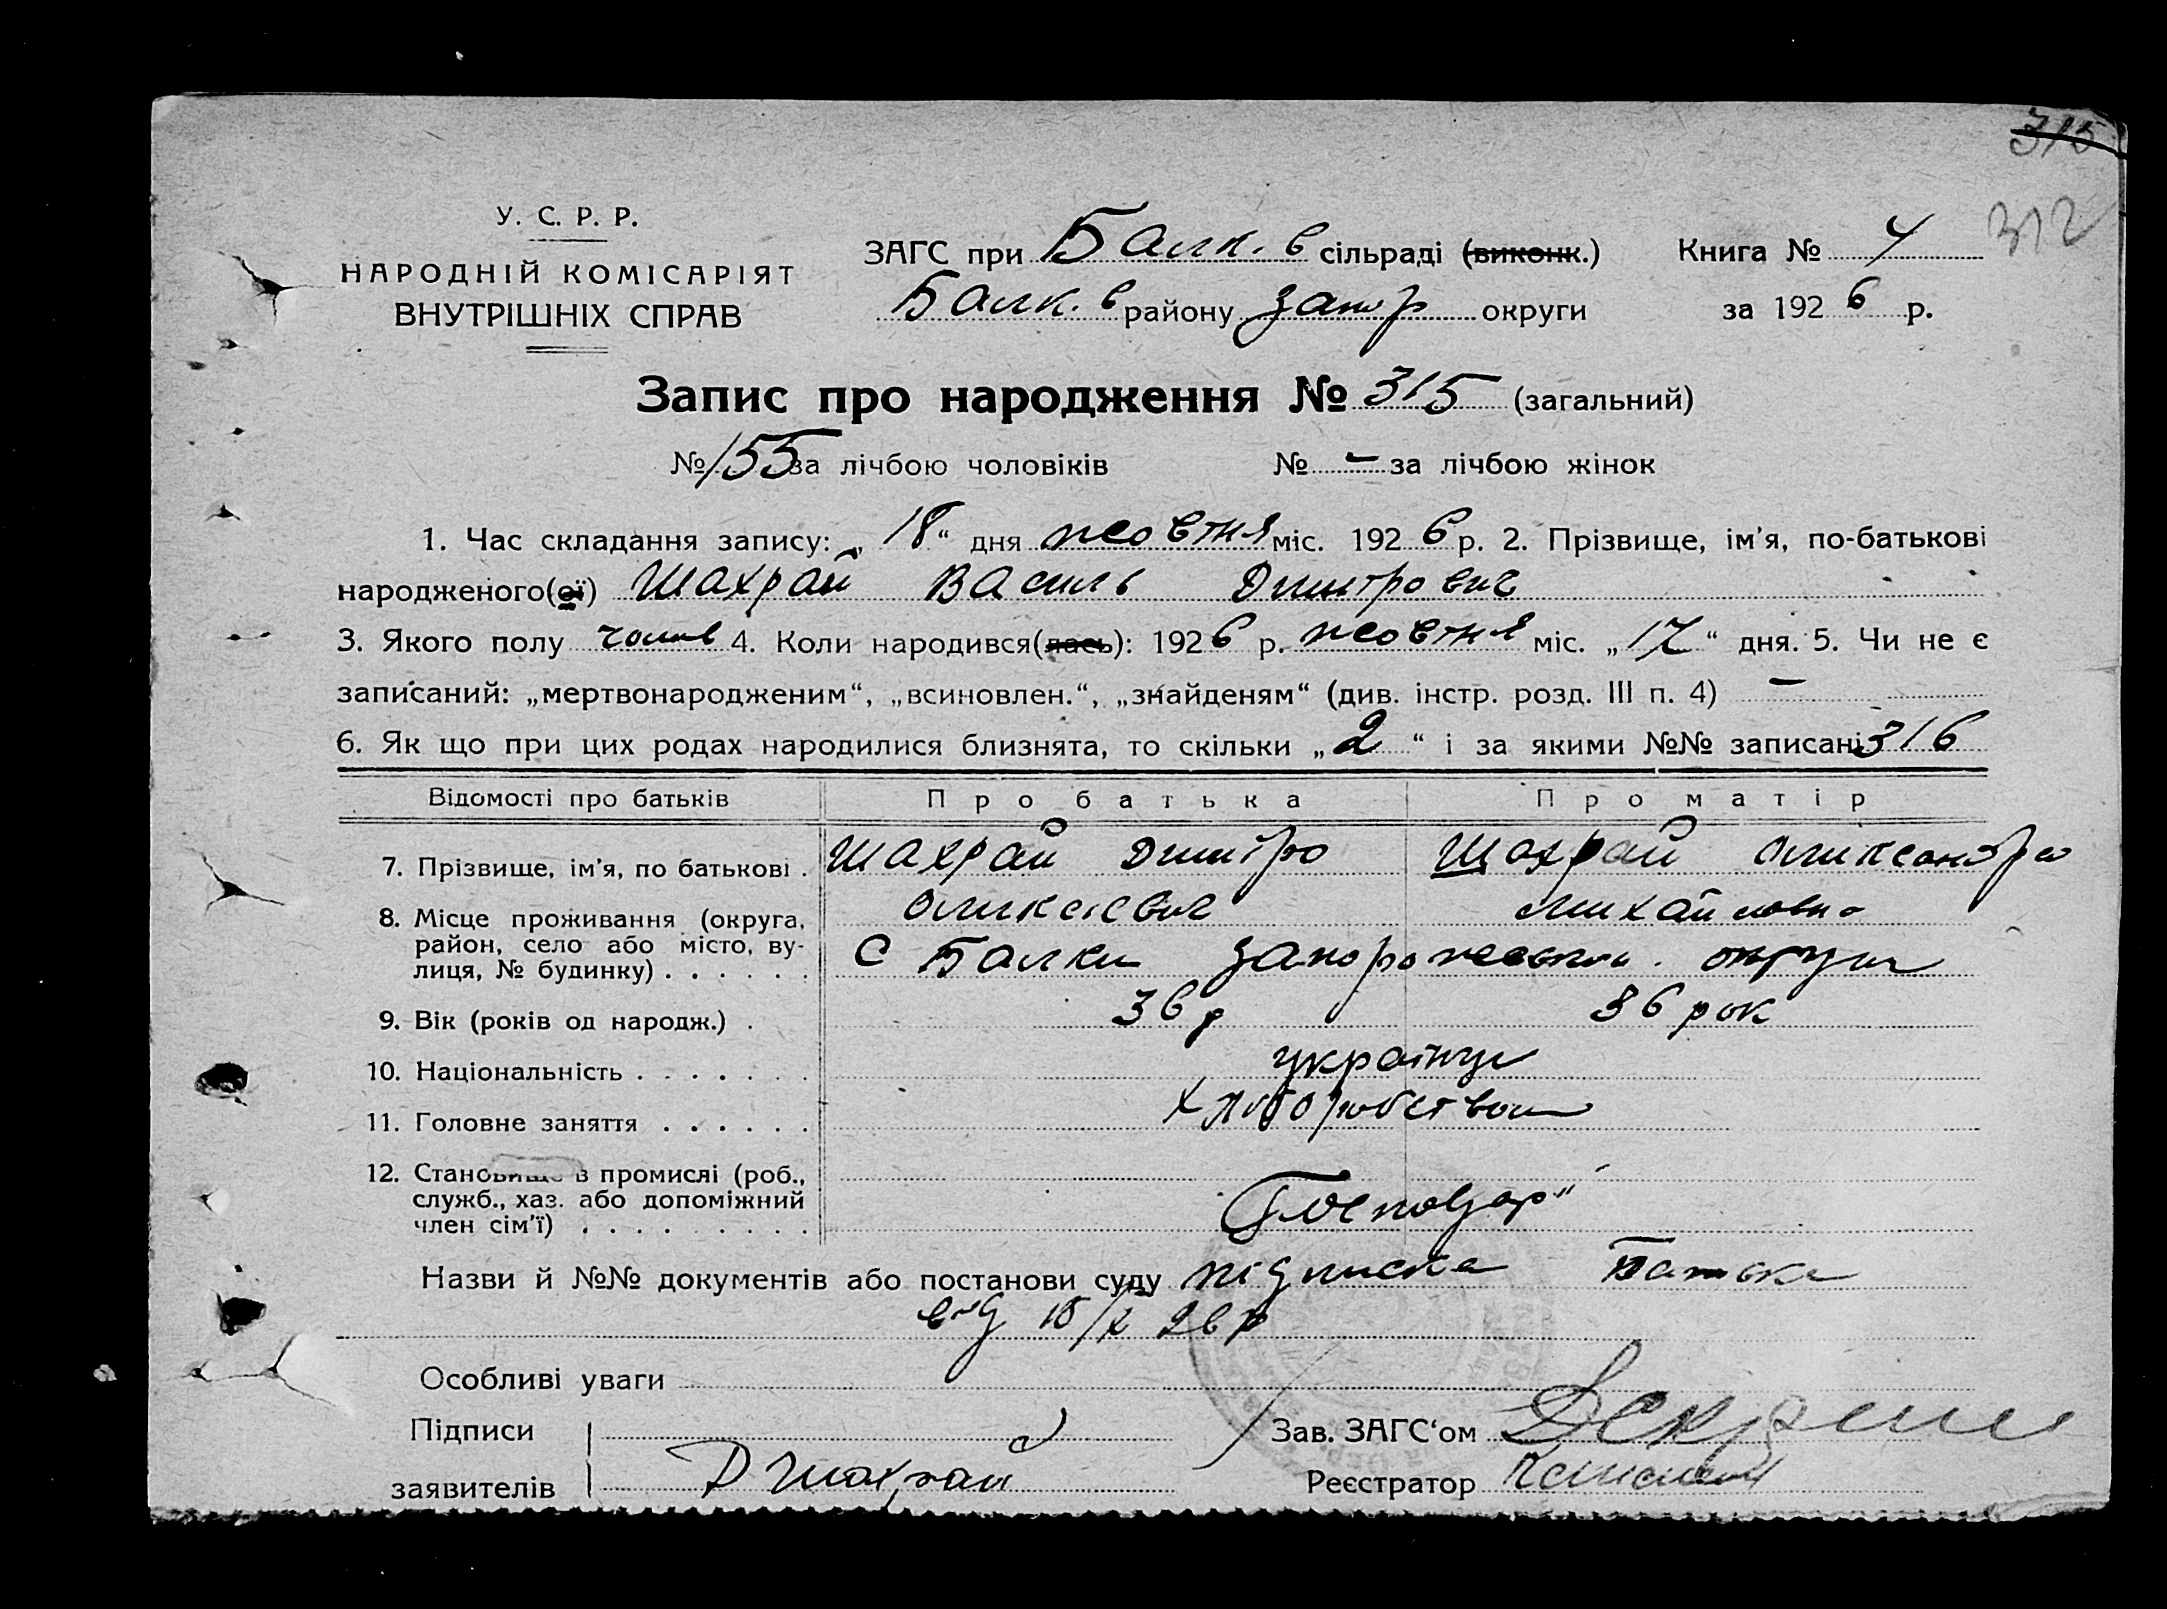 315
312
У. С. Р. Р.
НАРОДНІЙ КОМІСАРІЯТ
ВНУТРІШНІХ СПРАВ
ЗАГС при Балк. в сільраді (виконк.) Книга № 4
Балк. в району Запор округи за 1926 р.
Запис про народження № 315 (загальний)
№ 155 за лічбою чоловіків № – за лічбою жінок
1. Час складання запису: „18“ дня жовтня міс. 1926 р. 2. Прізвище, ім'я, по-батькові
народженого(ої) Шахрай Василь Дмитрович
3. Якого полу чолов 4. Коли народився(лась): 1926 р. жовтня міс. „17“ дня. 5. Чи не є
записаний: „мертвонародженим“, „всиновлен.“, „знайденям“ (див. інстр. розд. III п. 4) –
6. Як що при цих родах народилися близнята, то скільки „2“ і за якими №№ записані 316
Відомості про батьків Про батька Про матір
7. Прізвище, ім'я, по батькові . Шахрай Дмитро Шахрай Олександра
8. Місце проживання (округа, Оликсієвич Михайловна
район, село або місто, ву- С Балки Запорожськои округи
лиця, № будинку) . . . . . .
9. Вік (років од народж.) . 36 р 36 рок
10. Національність . . . . . . . українці
11. Головне заняття . . . . . . Хліборобством
12. Становище в промислі (роб.,
служб., хаз. або допоміжний „Господар“
член сім'ї) . . . . . . . . .
Назви й №№ документів або постанови суду підписка Батька
від 18/X 26 р
Особливі уваги
Підписи Зав. ЗАГС'ом
заявителів Д Шахрай Реєстратор